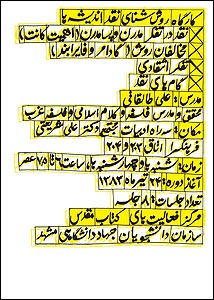 کارگاه روش شناسی نقد اندیشه ها
نقد در تفکر مدرن و پسامدرن (اهمیت کانت)
مخالفان روش (گادامر و فایرابند)
تفکر انتقادی
گام های نقد
مدرس: علی طالقانی
محقق و مدرس فلسفه و کلام اسلامی و فلسفه غرب
مکان: سه راه ادبیات مجتمع دکتر علی شریعتی
فروتکسرا اتاق ۲۰۳ و ۲۰۴
زمان: شنبه ها و چهارشنبه ها، ساعت ۶ تا ۷/۵ عصر
آغاز دوره: ۲۴ تیر ماه ۱۳۸۳
تعداد جلسات: ۱۸ جلسه
مرکز فعالیت های کتاب مقدس
سازمان دانشجویان جهاد دانشگاهی مشهد